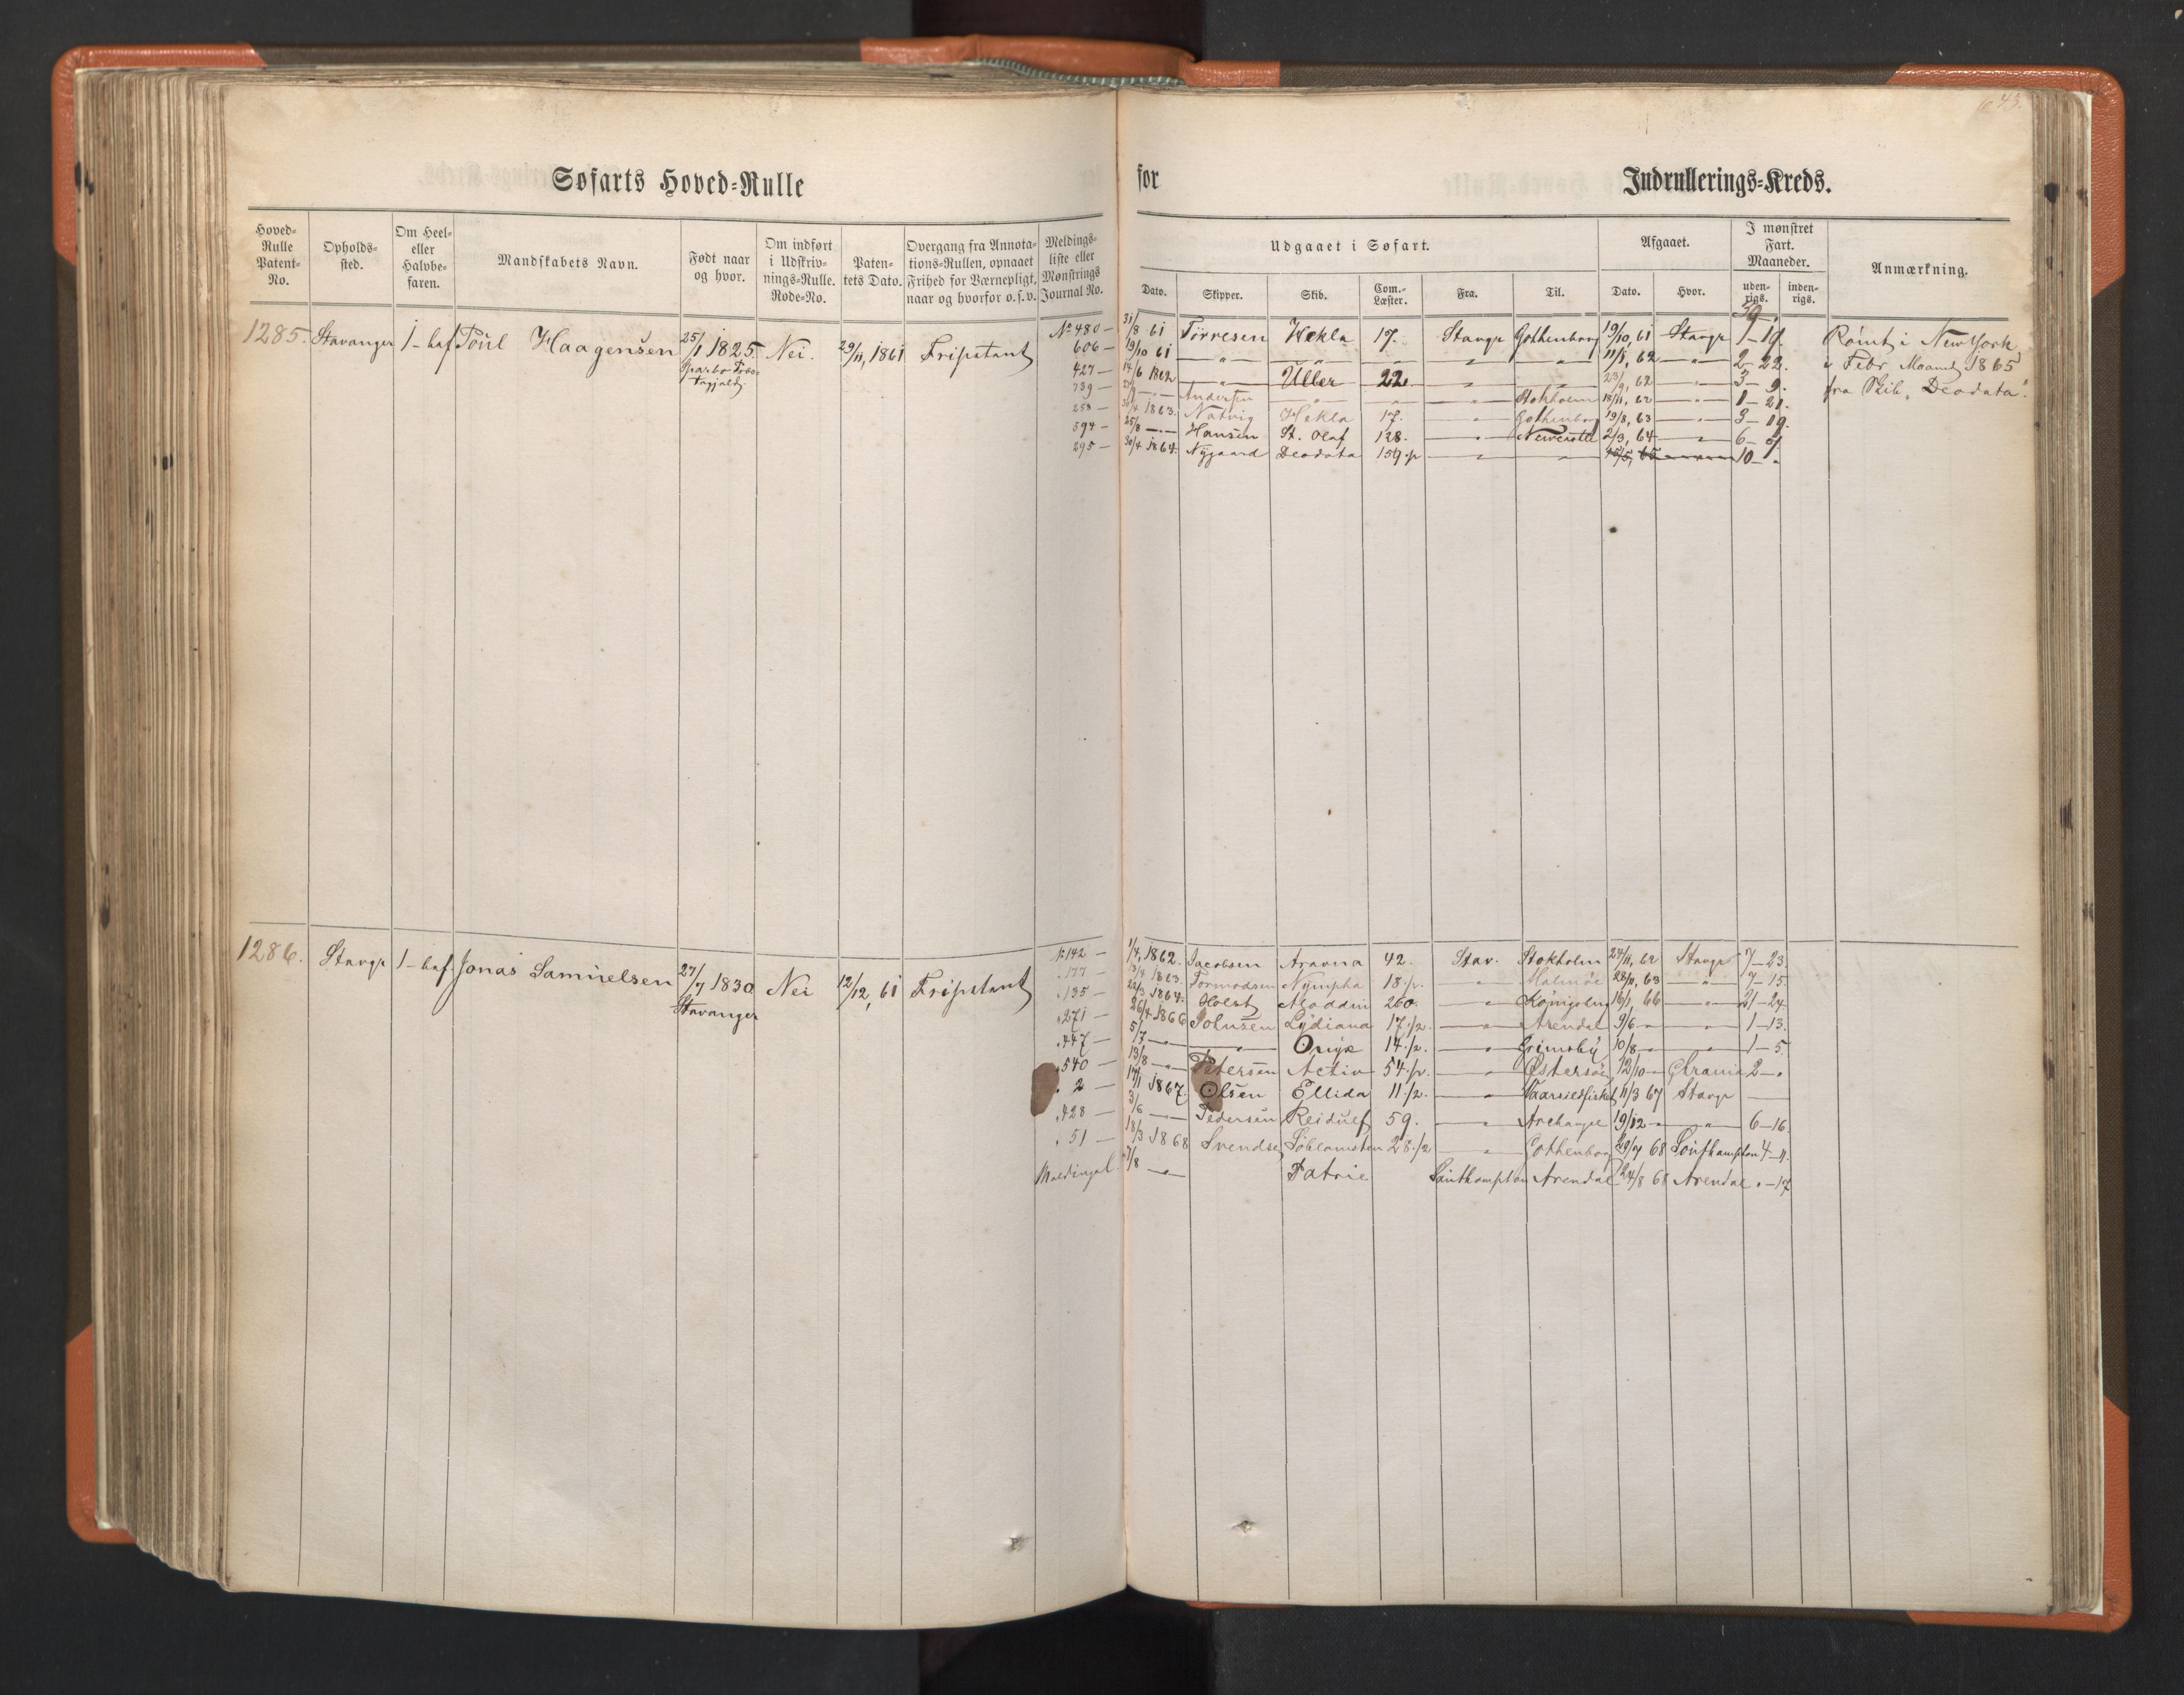 643.
Søfarts Hoved-Rulle for Indrullerings-Kreds.
Hoved-Rulle Patent-No. Opholds-sted. Om Heel- eller Halvbe-faren. Mandskabets Navn. Født naar og hvor. Om indført i Udskriv-nings-Rulle. Rode-No. Paten-tets Dato. Overgang fra Annota-tions-Rullen, opnaaet Frihed for Værnepligt, naar og hvorfor o. s. v. Meldings-liste eller Mønstrings Journal No.
Udgaaet i Søfart. Afgaaet. I mønstret Fart. Maaneder. Anmærkning.
Dato. Skipper. Skib. Com.-Læster. Fra. Til. Dato. Hvor. uden-rigs. inden-rigs.
1285. Stavanger 1-baf Poül Haagensen 25/1 1825. Nei. 29/11, 1861 Fripstant
No 480 — 31/8 61 Tørresen Hekla 17. Stavgr Gothenborg 19/10, 61 Stavgr 1-19. Rømt i New York
606 — 19/10 61 — " — " " " " 11/5, 62 — " — 2-22. i Febr Maaned 1865
427 — 14/6 1862 — " — Uller 22. " " 23/9, 62 " 3-9. fra Skib „Deodata".
739 — Andersen " " " Stokholm 18/11, 62 " 1-21.
253 — 30/4 1863. Natvig Hekla 17. " Gothenborg 19/8, 63 " 3-19.
594 — 25/8 — " — Hansen St. Olaf 128. " Newcastle 2/3, 64 " 6-7.
295 — 30/4 1864. Nygaard Deodata 159 p " " 10-".
1286. Stavgr 1-baf. Jonas Samuelsen 27/7 1830 Stavanger Nei 12/12, 61 Fripstant
No 142 — 1/4, 1862. Jacobsen Aravna 42. Stav. Stokholm 24/11, 62 Stavgr 7-23.
177 — 13/4 1863. Tormodsen Nympha 18 p. " Malmøe 28/11, 63 " 7-15.
135 — 22/3 1864. Holst Aladdin 260. " Königsberg 16/1, 66 " 21-24.
271 — 26/4 1866 Johnsen Lydiana 17 ½. " Arendal 9/6 " " 1-13.
447 — 5/7 — " — " Onyx 14 ½. " Grimsby 10/8 " " 1-5.
540 — 13/8 — " — Petersen Activ 54 ½. " Østersøen 12/10 " Chrania 2-".
2 — 17/1 1867. Olsen Ellida 11 ½. " Vaarsildfisket 11/3 67 Stavgr —
428 — 3/6 — " — Pedersen Reidulf 59. " Archangel 19/12 " " 6-16.
51 — 18/3 1868 Svendsen Søblomsten 28 ½ " Gothenborg 29/7 68 Southampton 4-11.
Meldingsl. 7/8 — " — Patrie Southampton Arendal 24/8 68 Arendal "-17